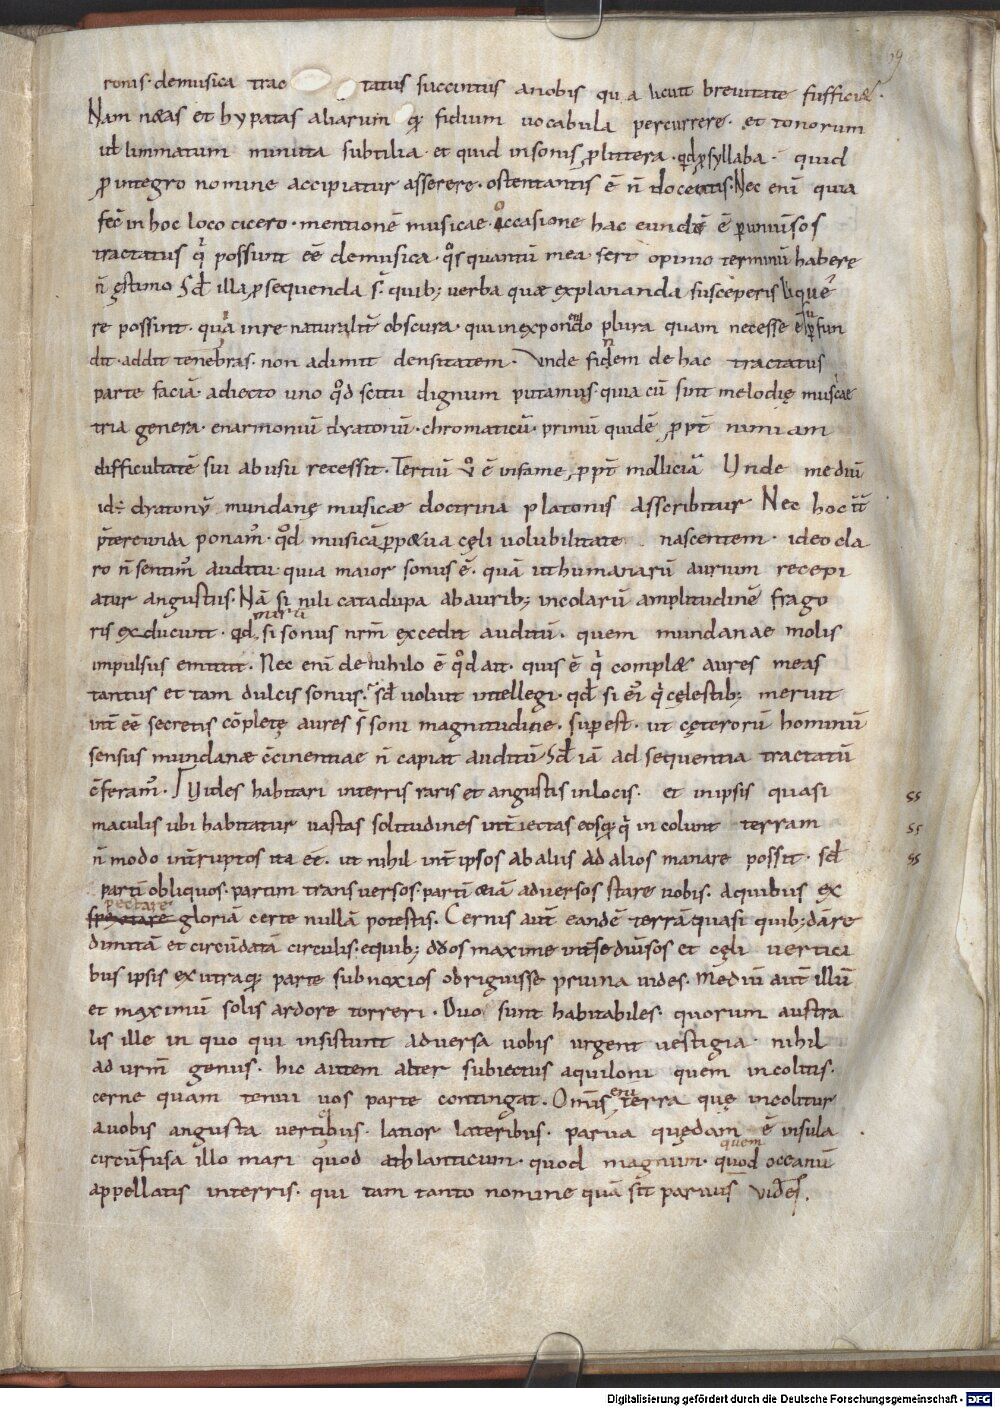 39
ronis· demusica trac tatus succintus anobis qu a licuit breuitate sufficiet·
Nam netas et hypatas aliarum q; fidium uocabula percurrere· et tonorum
uel limmatum minuta subtilia· et quid insonis ꝓ littera· qd ꝓ syllaba· quid
ꝓ integro nomine accipiatur asserere· ostentantis ē n̄ docentis· Nec eni quia
fec̄ in hoc loco cicero· mentionē musicae· occasione hac eundū ē ꝑ uniuersos
tractatus qͥ possunt eē demusica· qͦs quantū mea fert opinio terminū habere
n̄ estimo Sed illa ꝑsequenda s̄· quib; uerba quae explananda susceperis liquē
re possint· quia inre naturalit̄ obscura· qui inexponendo plura quam necesse ē suꝑfun
dit· addit tenebras· non adimit densitatem· Vnde finem de hac tractatus
parte faciā· adiecto uno qͦd scitu dignum putamus· quia cū sint melodię musicae
tria genera· enarmoniū dyatonū· chromaticū· primū quidē ꝓpt̄ nimiam
difficultatē sui abusu recessit· Tertiū uͦ ē infame, ꝓpt̄ molliciā Vnde mediū
id ÷ dyatonū mundanę musicae doctrina platonis asscribitur Nec hoc int̄
p̄tereunda ponam᾽· qͦd musicā ꝑpetua cęli uolubilitate nascentem· ideo cla
ro n̄ sentim᾽ auditu quia maior sonus ē· quā ut humanarū aurium recepi
atur angustiis· Nā si nili catadupa ab aurib; incolarū amplitudinē frago
ris excludunt· qd mirū si sonus nrm̄ excedit auditū· quem mundanae molis
impulsus emittit· Nec eni de nihilo ē qͦd ait· quis ē qͥ complet aures meas
tantus et tam dulcis sonus· sed uoluit intellegi· qd si ei᾽ qͥ cęlestib; meruit
int̄ eē secretis cōpletę aures s̄ soni magnitudine· suꝑest· ut cęterorū hominū
sensus mundanae c̄cinentiae n̄ capiat auditū Sed iā ad sequentia tractatū
c̄feram᾽· Vides habitari interris raris et angustis inlocis· et inipsis quasi
maculis ubi habitatur uastas solitudines int̄iectas eosq; qͥ incolunt terram
n̄ modo int̄ruptos ita eē· ut nihil int̄ ipsos ab aliis ad alios manare possit· sed
parti obliquos· partim transuersos· parti etiā aduersos stare uobis· aquibus ex
pectare
spectare gloriā certe nullā potestis· Cernis aut̄ eandē terrā quasi quib; dā re
dimitā et circūdatā circulis· equib; duos maxime int̄se diuisos et cęli vertici
bus ipsis ex utraq; parte subnoxios obriguisse pruina uides· mediū aut̄ illū
et maximū solis ardore torreri· Duo sunt habitabiles· quorum austra
lis ille in quo qui insistunt aduersa uobis urgent uestigia· nihil
ad urm̄ genus· hic autem alter subiectus aquiloni quem incolitis·
cerne quam tenui uos parte contingat· Omīs eni terra quę incolitur
auobis angusta uerticibus· latior lateribus· parua quędam ē insula
circūfusa illo mari quod athlanticum· quod magnum· quod quem oceanū
appellatis interris· qui tam tanto nomine quā sit paruus vides·
ss
ss
ss
Digitalisierung gefördert durch die Deutsche Forschungsgemeinschaft - DFG